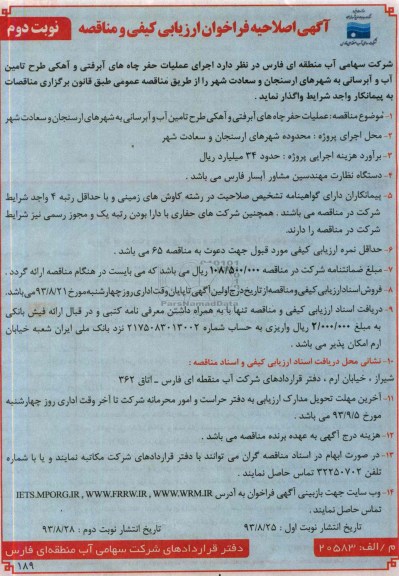 آگهی اصلاحیه فراخوان ارزیابی کیفی و مناقصه
نوبت دوم
شرکت سهامی آب منطقه ای فارس در نظر دارد اجرای عملیات حفر چاه های آبرفتی و آهکی طرح تامین
آب و آبرسانی به شهرهای ارسنجان و سعادت شهر را از طریق مناقصه عمومی طبق قانون برگزاری مناقصات
به پیمانکار واجد شرایط واگذار نماید .
۱- موضوع مناقصه : عملیات حفر چاه های آبرفتی و آهکی طرح تامین آب و آبرسانی به شهرهای ارسنجان و سعادت شهر
۲- محل اجرای پروژه : محدوده شهرهای ارسنجان و سعادت شهر
۳- برآورد هزینه اجرایی پروژه : حدود ۳۴ میلیارد ریال
۴- دستگاه نظارت مهندسین مشاور آبسار فارس می باشد .
۵- پیمانکاران دارای گواهینامه تشخیص صلاحیت در رشته کاوش های زمینی و با حداقل رتبه ۴ واجد شرایط
شرکت در مناقصه می باشند . همچنین شرکت های حفاری با دارا بودن رتبه یک و مجوز رسمی نیز شرایط
شرکت در مناقصه را دارند.
۶- حداقل نمره ارزیابی کیفی مورد قبول جهت دعوت به مناقصه ۶۵ می باشد .
۷- مبلغ ضمانتنامه شرکت در مناقصه ۱۰۸/۵۰۰/۰۰۰ ریال می باشد که می بایست در هنگام مناقصه ارائه گردد .
۸- فروش اسناد ارزیابی کیفی و مناقصه از تاریخ درج اولین آگهی تا پایان وقت اداری روز چهارشنبه مورخ ۹۳/۸/۲۱ می باشد.
۹- دریافت اسناد ارزیابی کیفی و مناقصه تنها با به همراه داشتن معرفی نامه کتبی و در قبال ارائه فیش بانکی
به مبلغ ۲/۰۰۰/۰۰۰ ریال واریزی به حساب شماره ۲۱۷۵۰۸۳۰۱۳۰۰۲ نزد بانک ملی ایران شعبه خیابان
ارم امکان پذیر می باشد .
۱۰- نشانی محل دریافت اسناد ارزیابی کیفی و اسناد مناقصه :
شیراز ، خیابان ارم ، دفتر قراردادهای شرکت آب منقطه ای فارس ـ اتاق ۳۶۲
۱۱- آخرین مهلت تحویل مدارک ارزیابی به دفتر حراست و امور محرمانه شرکت تا آخر وقت اداری روز چهارشنبه
مورخ ۹۳/۹/۵ می باشد .
۱۲- هزینه درج آگهی به عهده برنده مناقصه می باشد .
۱۳- در صورت ابهام در اسناد مناقصه گران می توانند با دفتر قراردادهای شرکت مکاتبه نمایند و یا با شماره
تلفن ۳۲۲۵۰۷۰۲ تماس حاصل نمایند .
۱۴- وب سایت جهت بازبینی آگهی فراخوان به آدرس IETS.MPORG.IR , WWW.FRRW.IR , WWW.WRM.IR
تماس حاصل نمایند .
تاریخ انتشار نوبت اول : ۹۳/۸/۲۵
تاریخ انتشار نوبت دوم : ۹۳/۸/۲۸
م / الف: ۲۰۵۸۳
دفتر قراردادهای شرکت سهامی آب منطقه‌ای فارس
۱۸۹
ParsNamadData